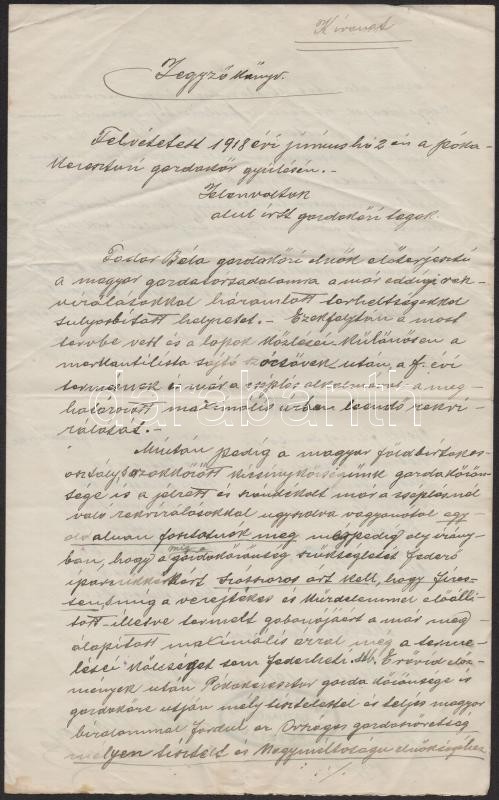 Kivonat
Jegyzőkönyv.
Felvétetett 1918 évi június hó 2 án a póka-
keresztúri gazdakör gyűlésén.-
Jelenvoltak
alul írott gazdaköri tagok
Fodor Béla gazdaköri elnök előterjeszti
a magyar gazdatársadalomra a már eddigi rek-
virálásokkal háramlott terheltségekkel
súlyosbított helyzetet.- Ezekfolytán a most
tervbe vett és a lapok közlései különösen a
merkantilista sajtó szócsövek után, a f. évi
termésnek már a cséplés alkalmával a meg-
határozott maximális árban leendő rekvi-
rálását.-
Miután pedig a magyar földbirtokos-
osztály s kisgazdaközönsége
sége is a jelzett és már a cséplésnél
való rekvirálásokkal úgyszólva vagyonától egy-
alman fosztatnék meg, még pedig oly irány-
ban, hogy míg a gazdaközönség szükségletét fedező
iparcikkekért szoros árt kell, hogy fizes-
sen, míg a verejtékes és küzdelemmel előállí-
tott illetve termelt gabonájáért a már meg-
állapított maximális árral még a terme-
lési költséget sem fedezheti stb. Ezővid elő-
mények után Pókakeresztúr gazda közönsége és
gazdaköre útján mély tisztelettel és teljes magyar
bizalommal fordul az Országos gazdaszövetség
mélyen tisztelt és Nagyméltóságú elnökségéhez